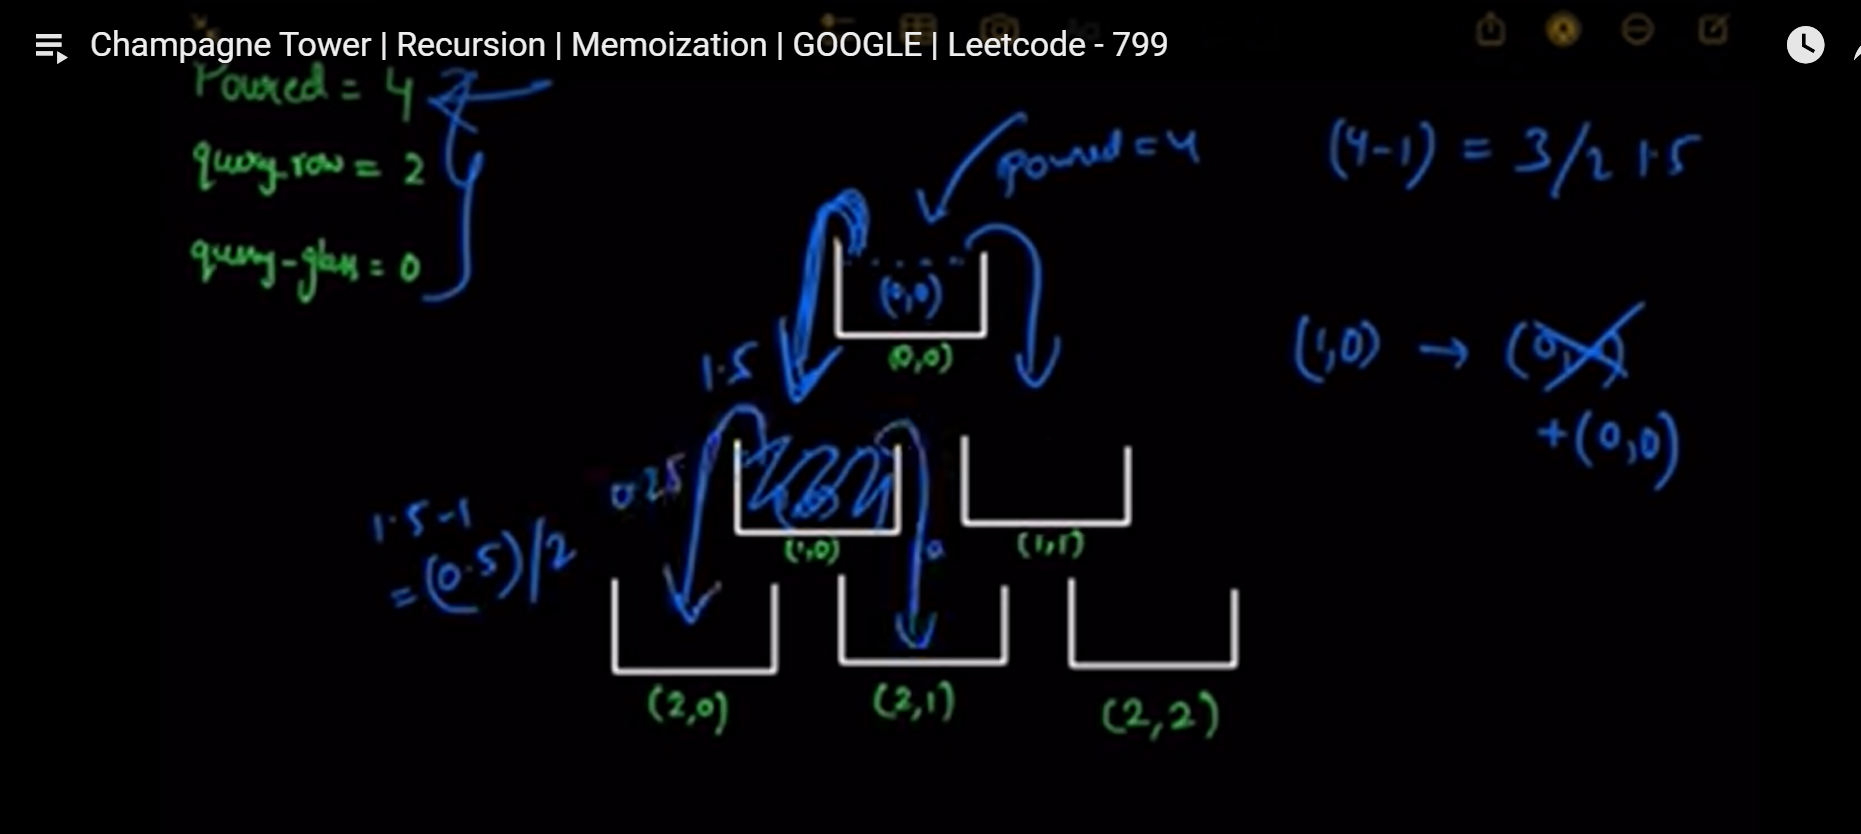 Champagne Tower | Recursion | Memoization | GOOGLE | Leetcode - 799
Poured = 4
query_row = 2
query-glass = 0
Poured = 4
(4-1) = 3/2 1.5
(0,0)
(0,0)
1.5
(1,0) →
+(0,0)
0.25
1.5-1
= (0.5)/2
(1,0)
(1,1)
(2,0)
(2,1)
(2,2)